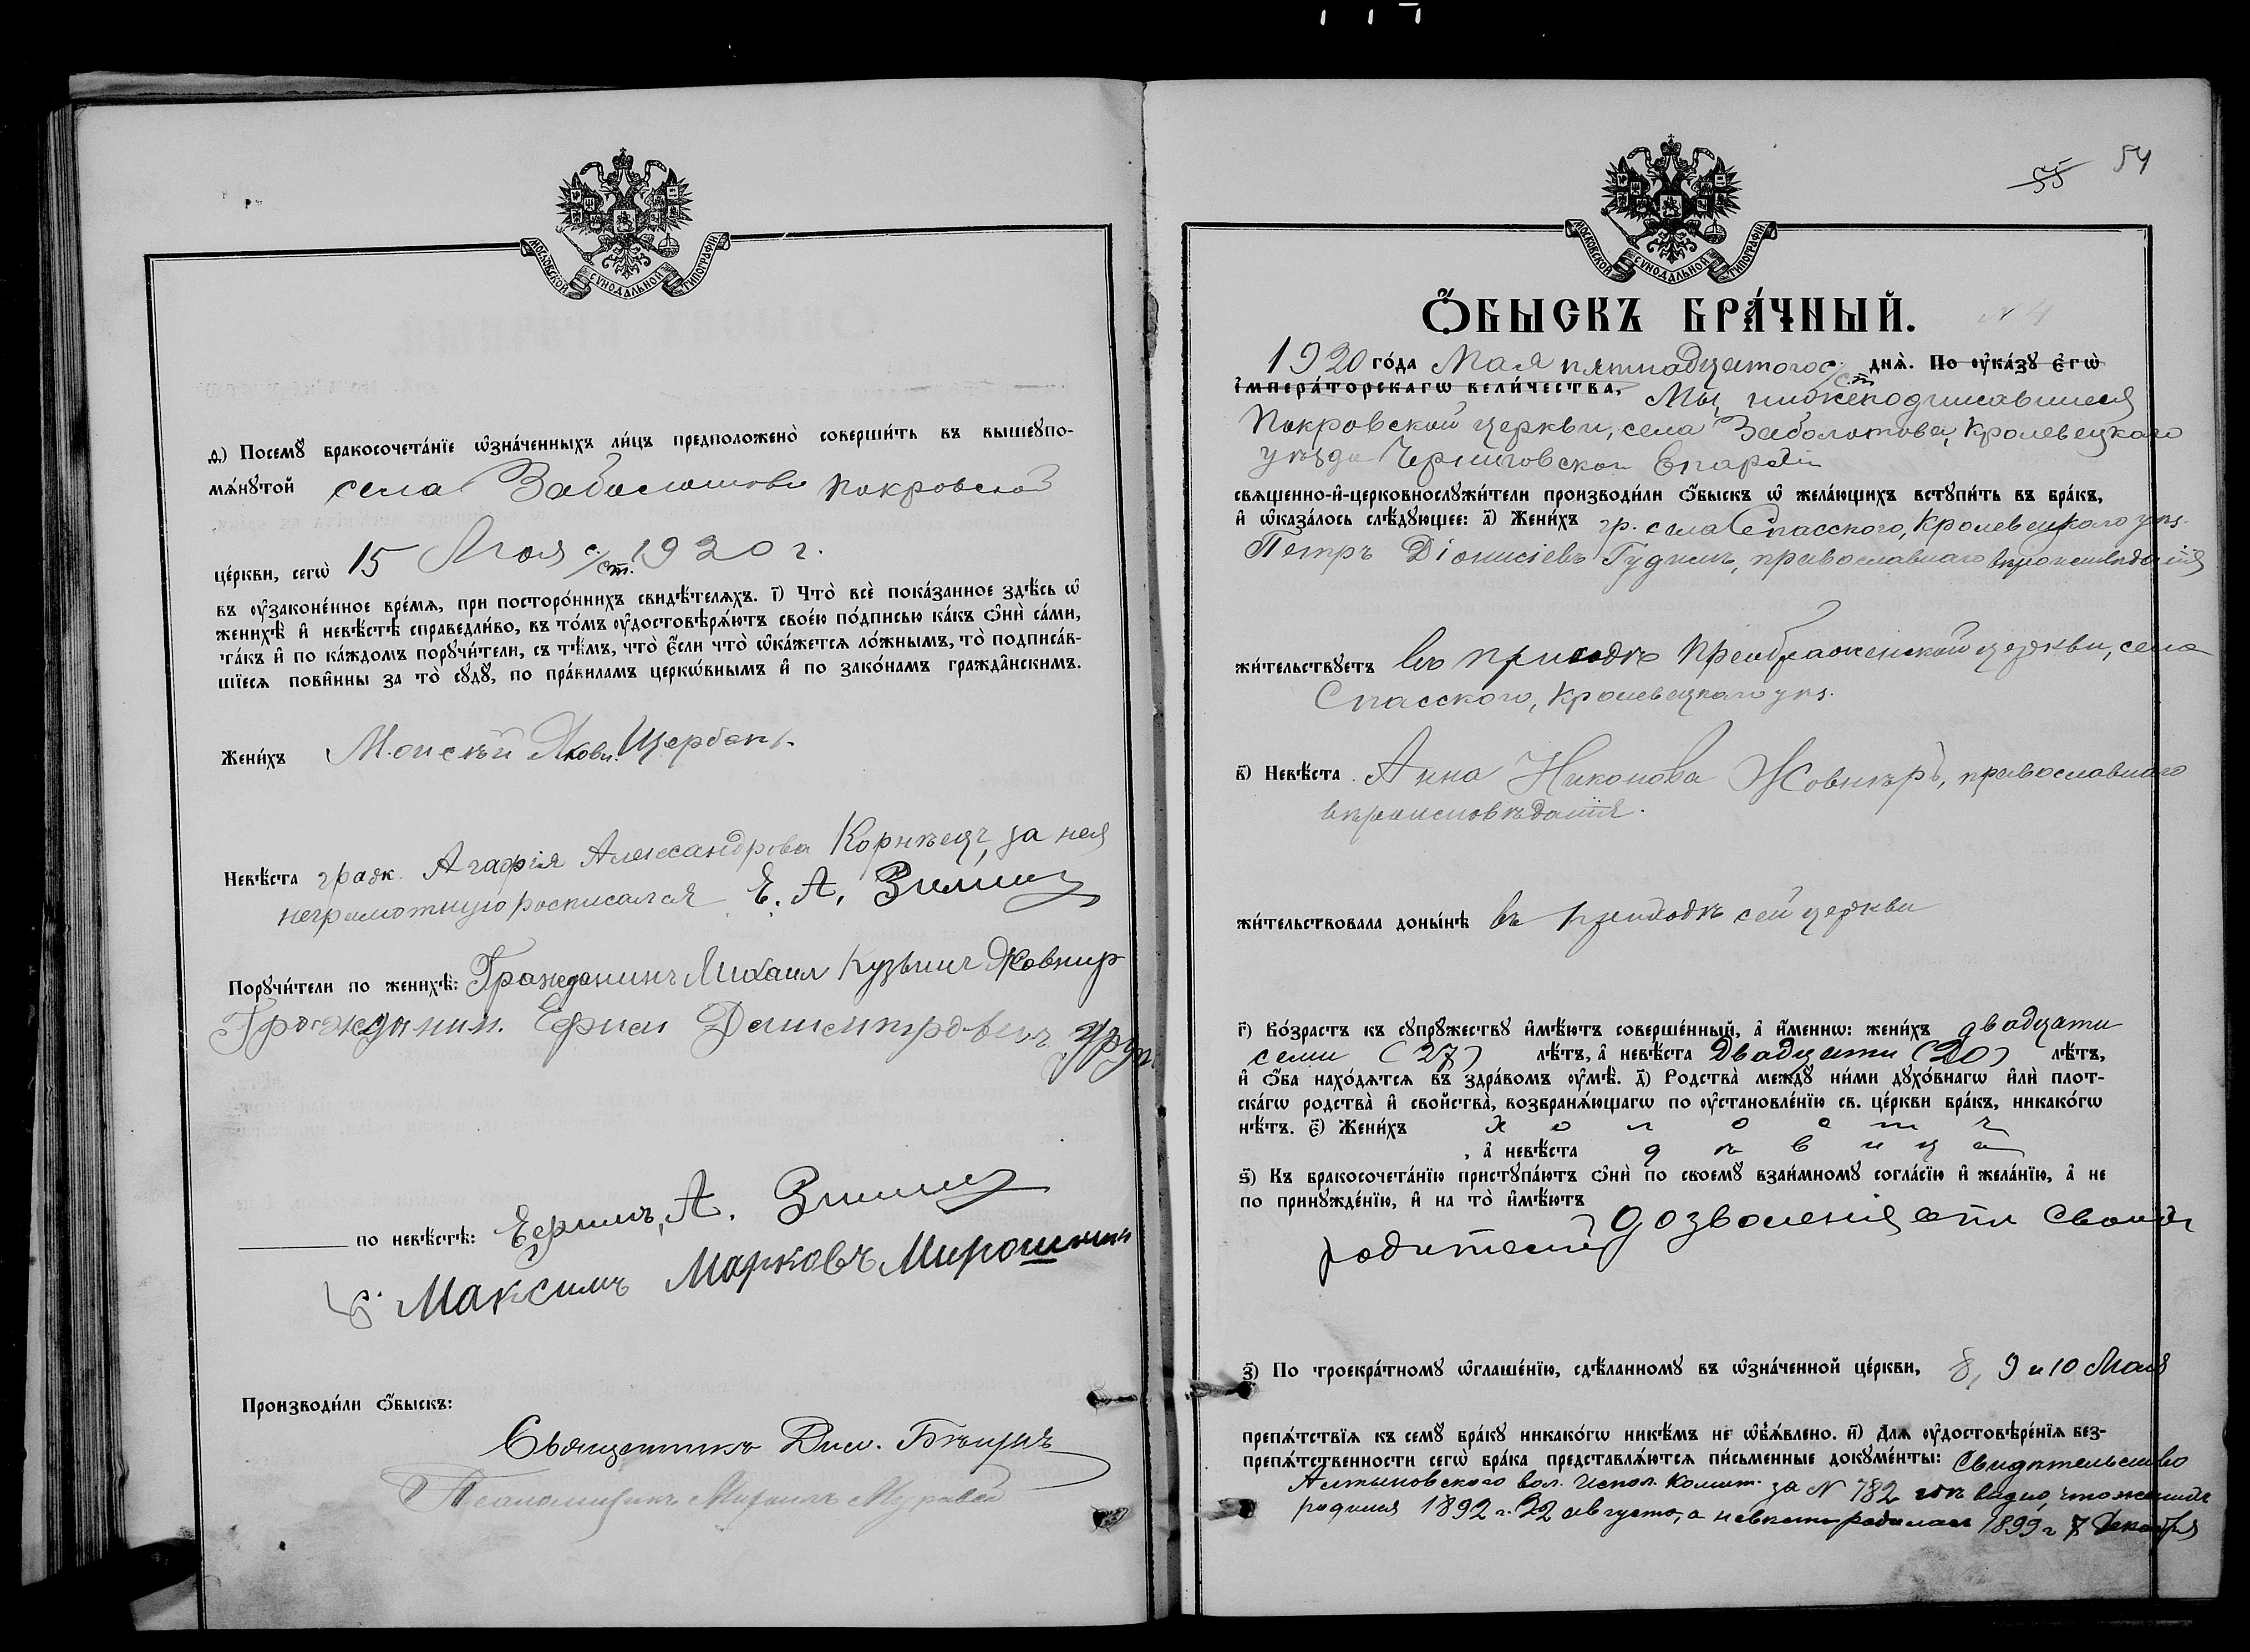 МОСКОВСКОЙ СѴНОДАЛЬНОЙ ТИПОГРАФІИ
ѳ҃) Посемꙋ̀ бракосочета́нїе ѡ҆зна́ченныхъ ли́цъ предположено̀ соверши́ть въ вышеꙋпо-
мѧ́нꙋтой села Заболотова Покровской
це́ркви, сегѡ̀ 15 Мая с/ст. 1920 г.
въ ᲂу҆законе́нное вре́мѧ, при посторо́ннихъ свидѣ́телѧхъ. і҃) Что̀ всѐ пока́занное здѣ́сь ѡ҆
женихѣ̀ и҆ невѣ́стѣ справедли́во, въ то́мъ ᲂу҆достовѣрѧ́ютъ свое́ю по́дписью ка́къ ѻ҆нѝ са́ми,
та́къ и҆ по ка́ждомъ порꙋчи́тели, съ тѣ́мъ, что̀ є҆́сли что̀ ѡ҆ка́жетсѧ ло́жнымъ, то̀ подписа́в-
шїесѧ пови́нны за то̀ сꙋдꙋ̀, по пра́виламъ церко́внымъ и҆ по зако́намъ гражда́нскимъ.
Жени́хъ Моисей Яковл. Щербакъ.
Невѣ́ста гражк. Агафія Александрова Корнѣецъ, за нея
неграмотную росписался Е. А. Зимин
Порꙋчи́тели по женихѣ̀: Гражданинъ Михаил Кузьмич Жовнир
Гражданин. Ефим
по невѣ́стѣ: Ефимъ, А. Зимин
Максимъ Марковъ Мирошнин
Производи́ли ѻ҆́быскъ:
Священникъ Дим.
Псаломщикъ Муравей
55 54
МОСКОВСКОЙ СѴНОДАЛЬНОЙ ТИПОГРАФІИ
Ѻ҆́БЫСКЪ БРА́ЧНЫЙ. N 4
1920 го́да Мая пятнадцатого с/ст днѧ̀. По ᲂу҆ка́зꙋ є҆гѡ̀
и҆мпера́торскагѡ вели́чества, Мы, нижеподписавшиеся
Покровской церкви, села Заболотова, Кролевецкаго
уѣзда Черниговской Епархіи
свѧщенно-и҆-церковнослꙋжи́тели производи́ли ѻ҆́быскъ ѡ҆ жела́ющихъ встꙋпи́ть въ бра́къ,
и҆ ѡ҆каза́лось слѣ́дꙋющее: а҃) Жени́хъ гр. села Спасского, Кролевецкаго уѣз.
Петръ Діонисіевъ Гудимъ, православнаго вѣроисповѣданія
жи́тельствꙋетъ въ приходѣ Преображенской церкви, села
Спасского, Кролевецкаго уѣз.
в҃) Невѣ́ста Анна Никонова Жовниръ, православнаго
вѣроисповѣданія.
жи́тельствовала доны́нѣ въ приходѣ сей церкви
г҃) Во́зрастъ къ сꙋпрꙋ́жествꙋ и҆мѣ́ютъ соверше́нный, а҆ и҆́менно: жени́хъ двадцати
семи (27) лѣ́тъ, а҆ невѣ́ста Двадцати (20) лѣ́тъ,
и҆ ѻ҆́ба нахо́дѧтсѧ въ здра́вомъ ᲂу҆мѣ̀. д҃) Родства̀ междꙋ̀ ни́ми дꙋхо́внагѡ и҆лѝ плот-
ска́гѡ родства̀ и҆ свойства̀, возбранѧ́ющагѡ по ᲂу҆становле́нїю св. це́ркви бра́къ, никако́гѡ
нѣ́тъ. є҃) Жени́хъ холостъ
, а҆ невѣ́ста дѣвица
ѕ҃) Къ бракосочета́нїю пристꙋпа́ютъ ѻ҆нѝ по своемꙋ̀ взаи́мномꙋ согла́сїю и҆ жела́нїю, а҆ не
по принꙋжде́нїю, и҆ на то̀ и҆мѣ́ютъ
дозволенія отъ своихъ
родителей
з҃) По троекра́тномꙋ ѡ҆глаше́нїю, сдѣ́ланномꙋ въ ѡ҆зна́ченной це́ркви, 8, 9 и 10 Мая
препѧ́тствїѧ къ семꙋ̀ бра́кꙋ никако́гѡ никѣ́мъ не ѡ҆б̾ѧ́влено. и҃) Длѧ̀ ᲂу҆достовѣре́нїѧ без-
препѧ́тственности сегѡ̀ бра́ка представлѧ́ютсѧ пи́сьменные докꙋме́нты: Свидѣтельство
Алтыновского вол. Испол. Комит. за N 782 видно, что женихъ
родился 1892 г. 22 августа, а невѣста родилась 1899 г 7 Декабря